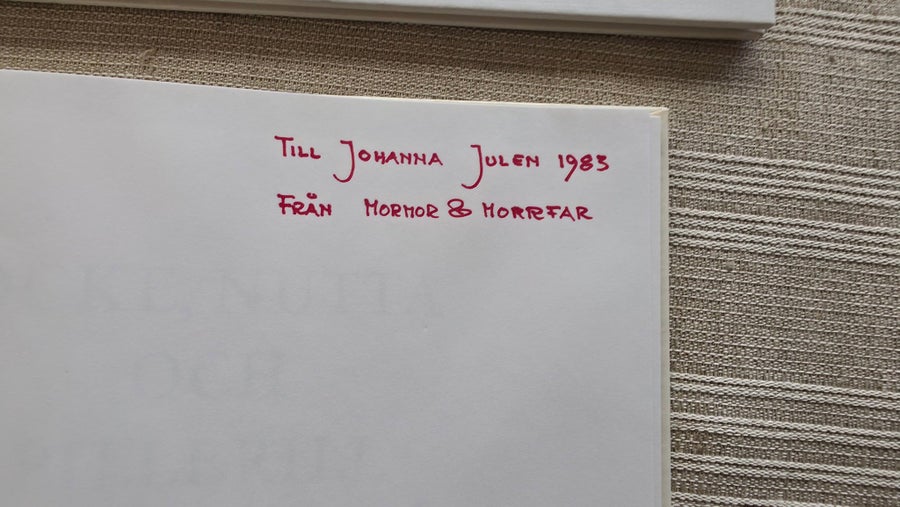 TILL JOHANNA JULEN 1983
FRÅN MORMOR & MORRFAR
NUTTA
OCH